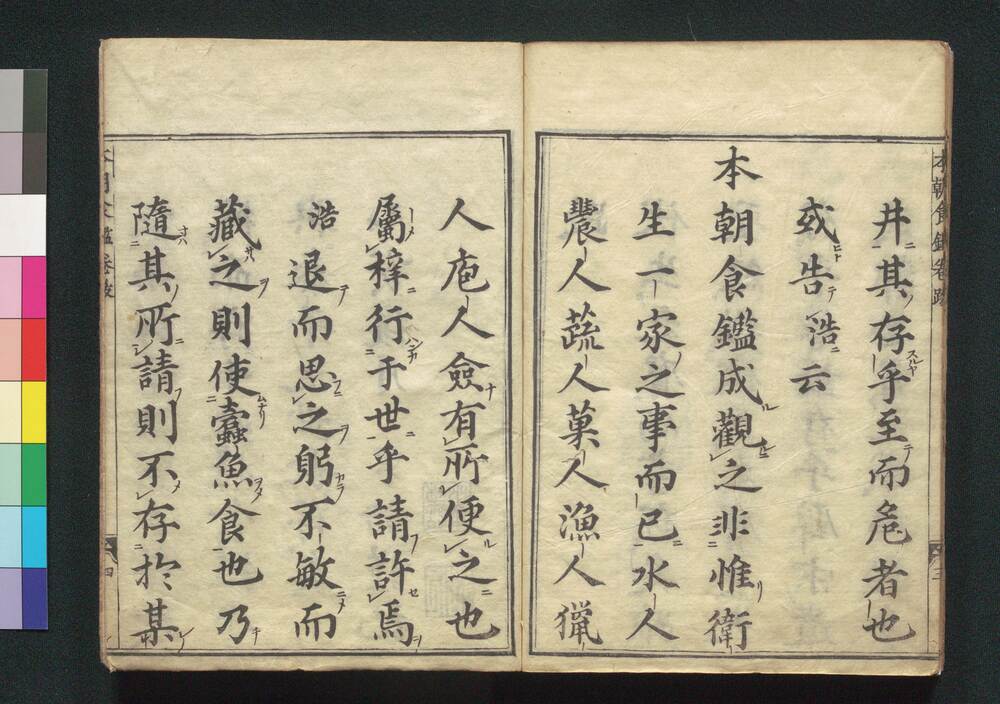 本朝食鑑卷跋
井其存乎至而危者也
或告浩云
本朝食鑑成觀之非惟衛
生一家之事而已水人
農人蔬人菓人漁人獵
三
人庖人僉有所便之也
屬梓行于世乎請許焉
浩退而思之躬不敏而
藏之則使蠹魚食也乃
隨其所請則不存於某
四